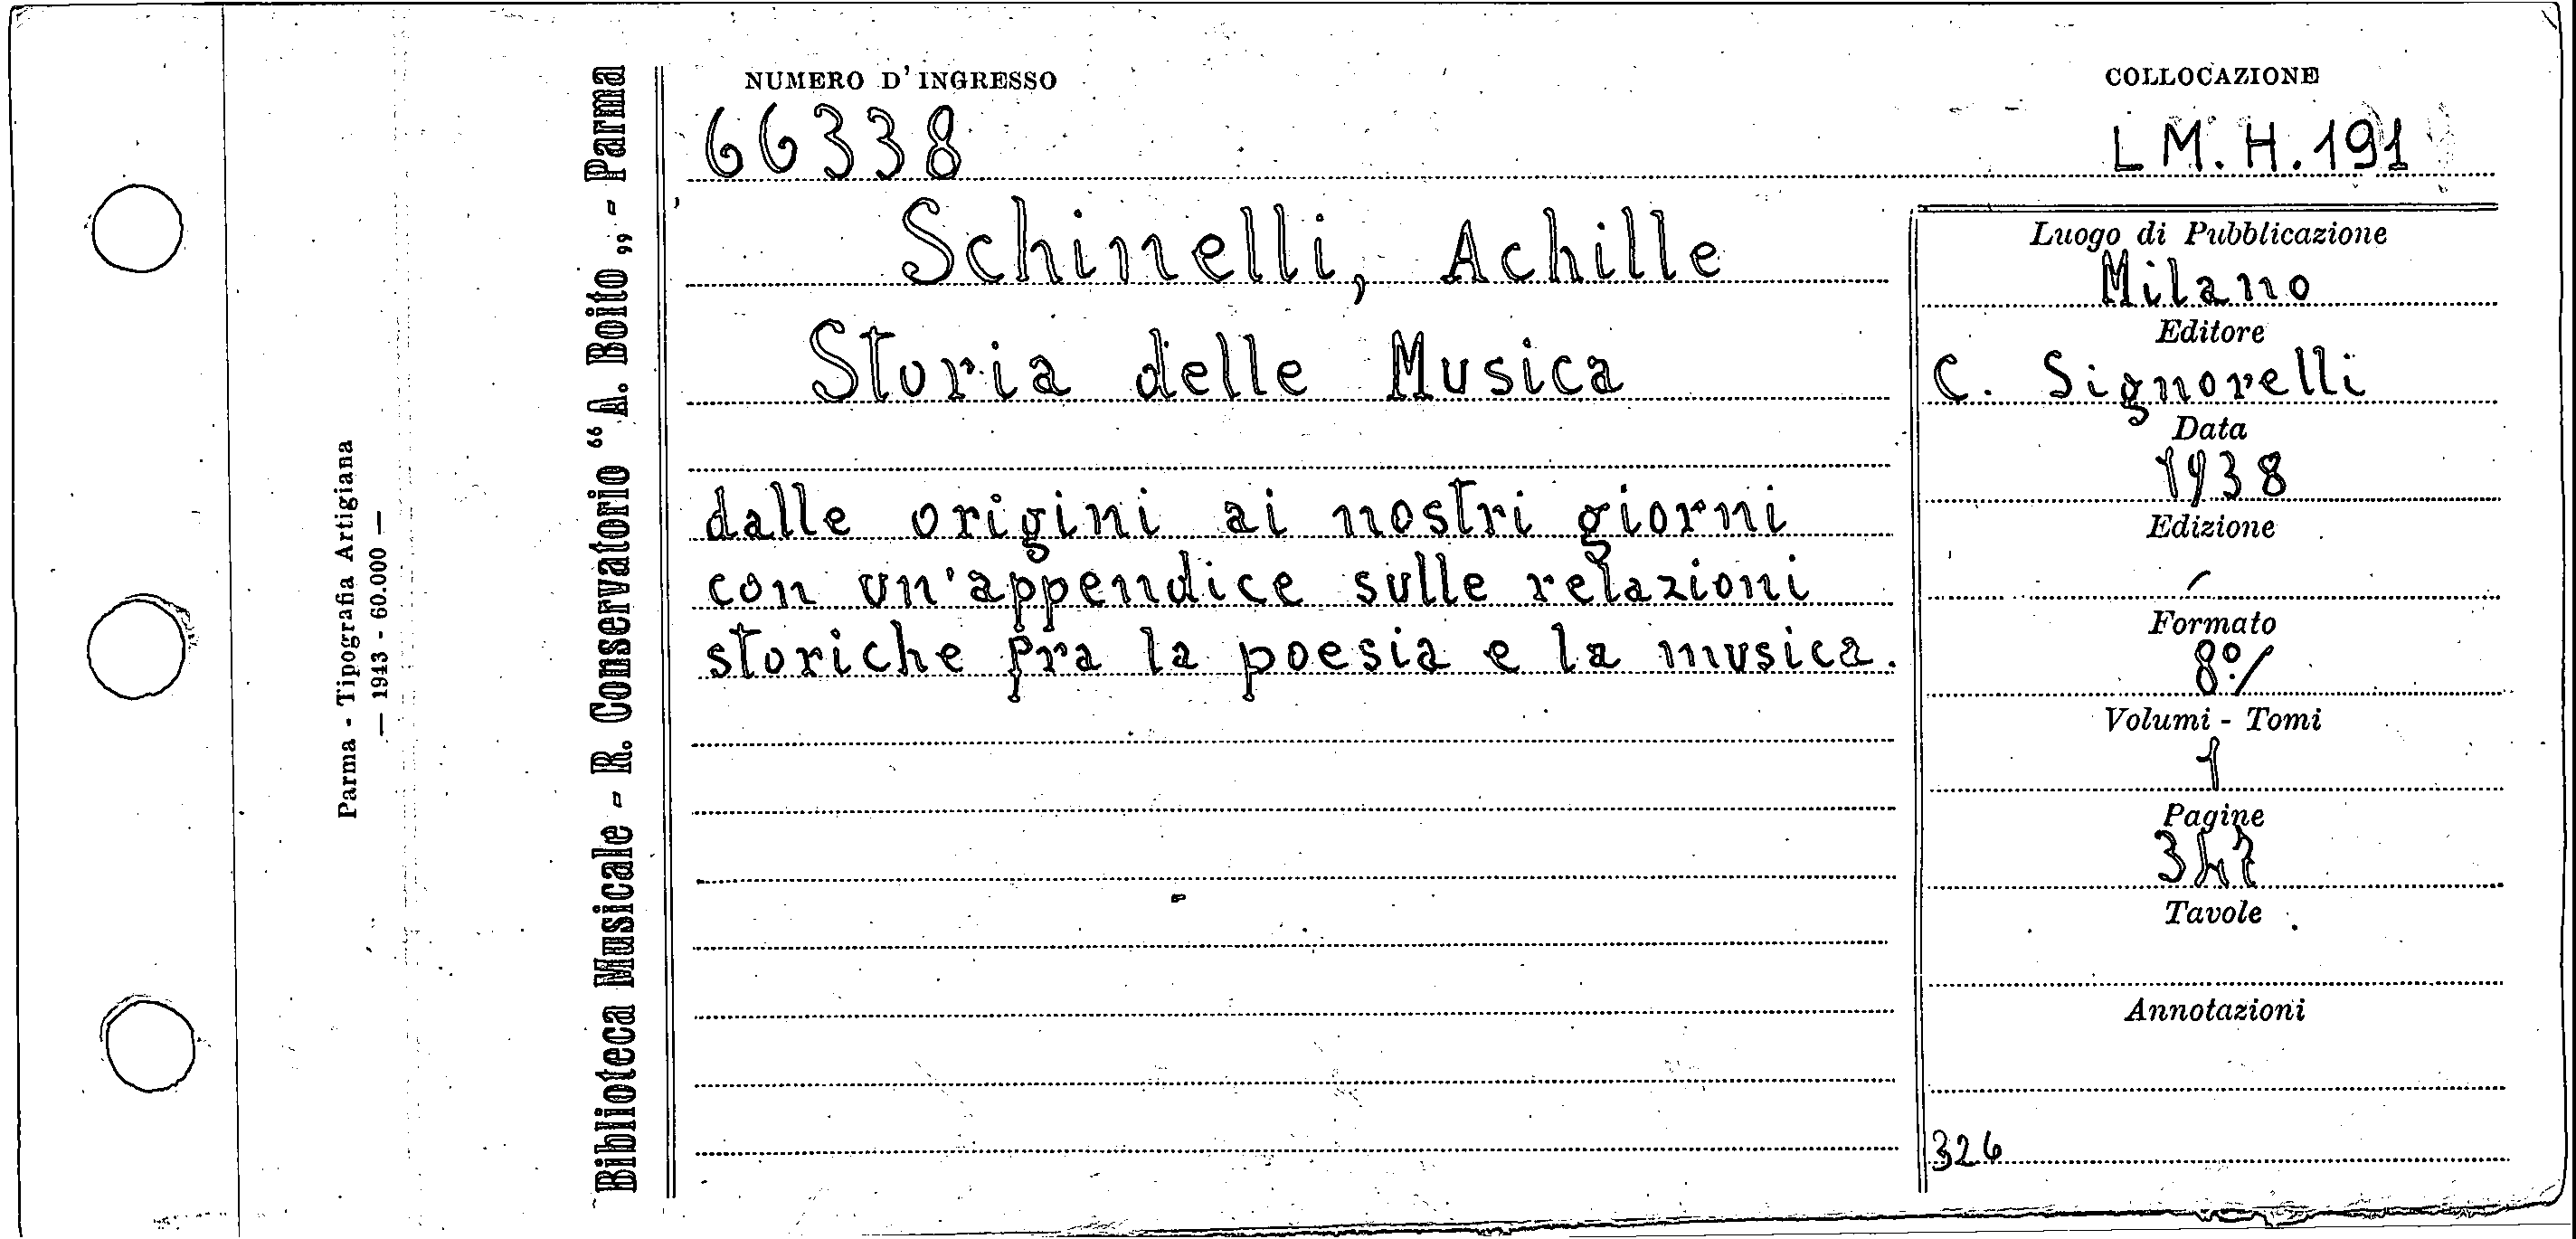 NUMERO D'INGRESSO
66338
COLLOCAZIONE
LM.H.191
Schinelli, Achille
Storia delle Musica
dalle origini ai nostri giorni
con un'appendice sulle relazioni
storiche fra la poesia e la musica.
Luogo di Pubblicazione
Milano
Editore
C. Signorelli
Data
1938
Edizione
Formato
8º/
Volumi - Tomi
1
Pagine
347
Tavole
Annotazioni
326
Biblioteca Musicale - R. Conservatorio “A. Boito„ - Parma
Parma - Tipografia Artigiana
— 1943 - 60.000 —